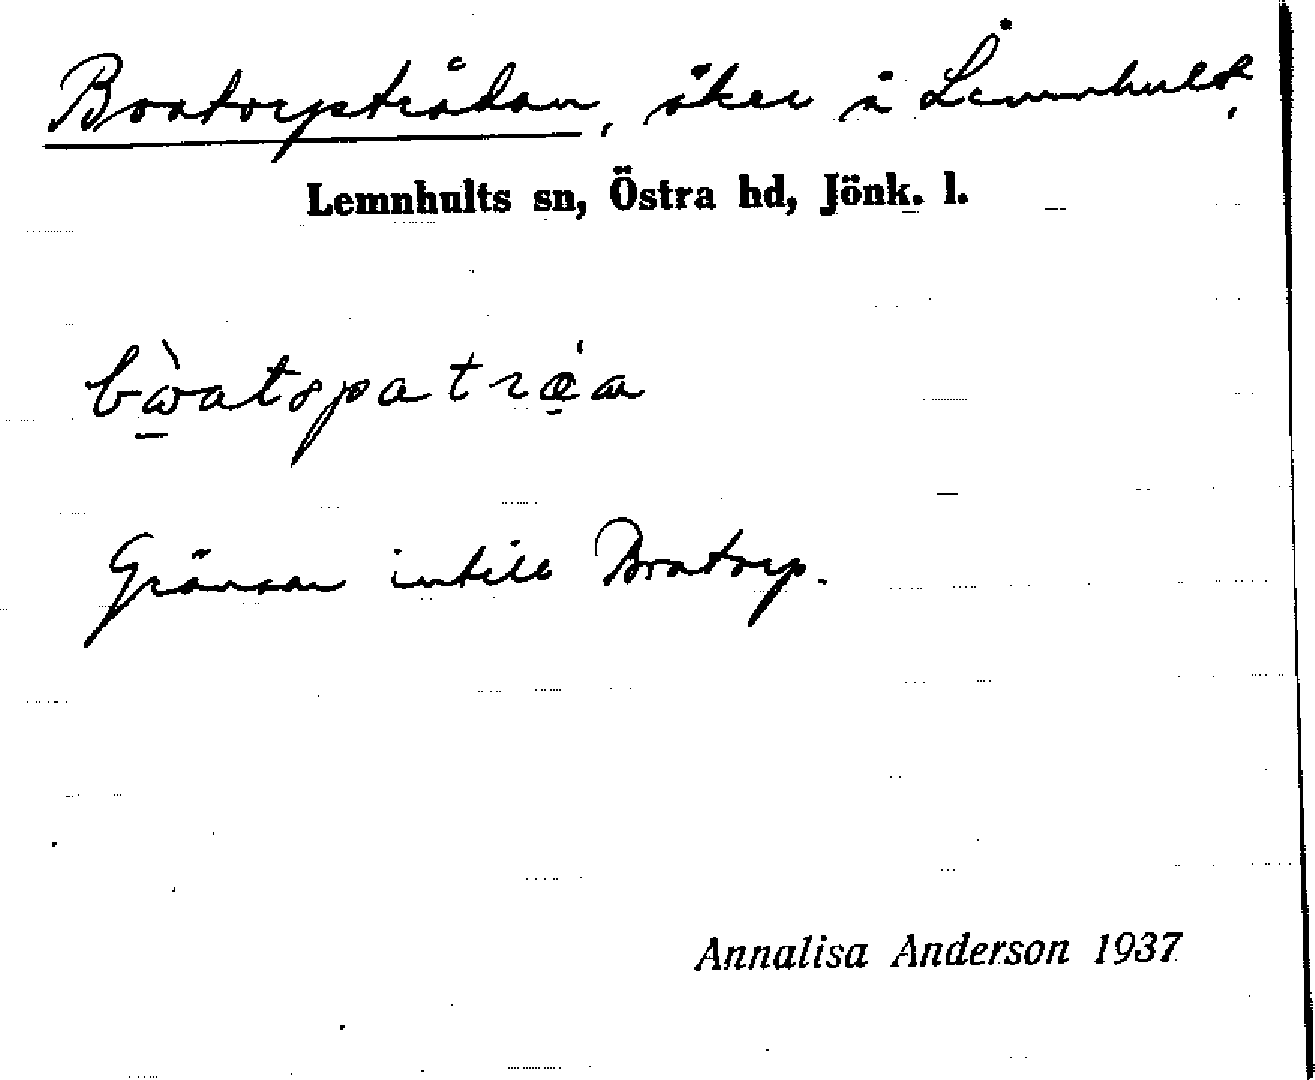 Boatorpsträdan, åker å Lemnhult,
Lemnhults sn, Östra hd, Jönk. l.
Gränsar intill Boatorp.
Annalisa Anderson 1937